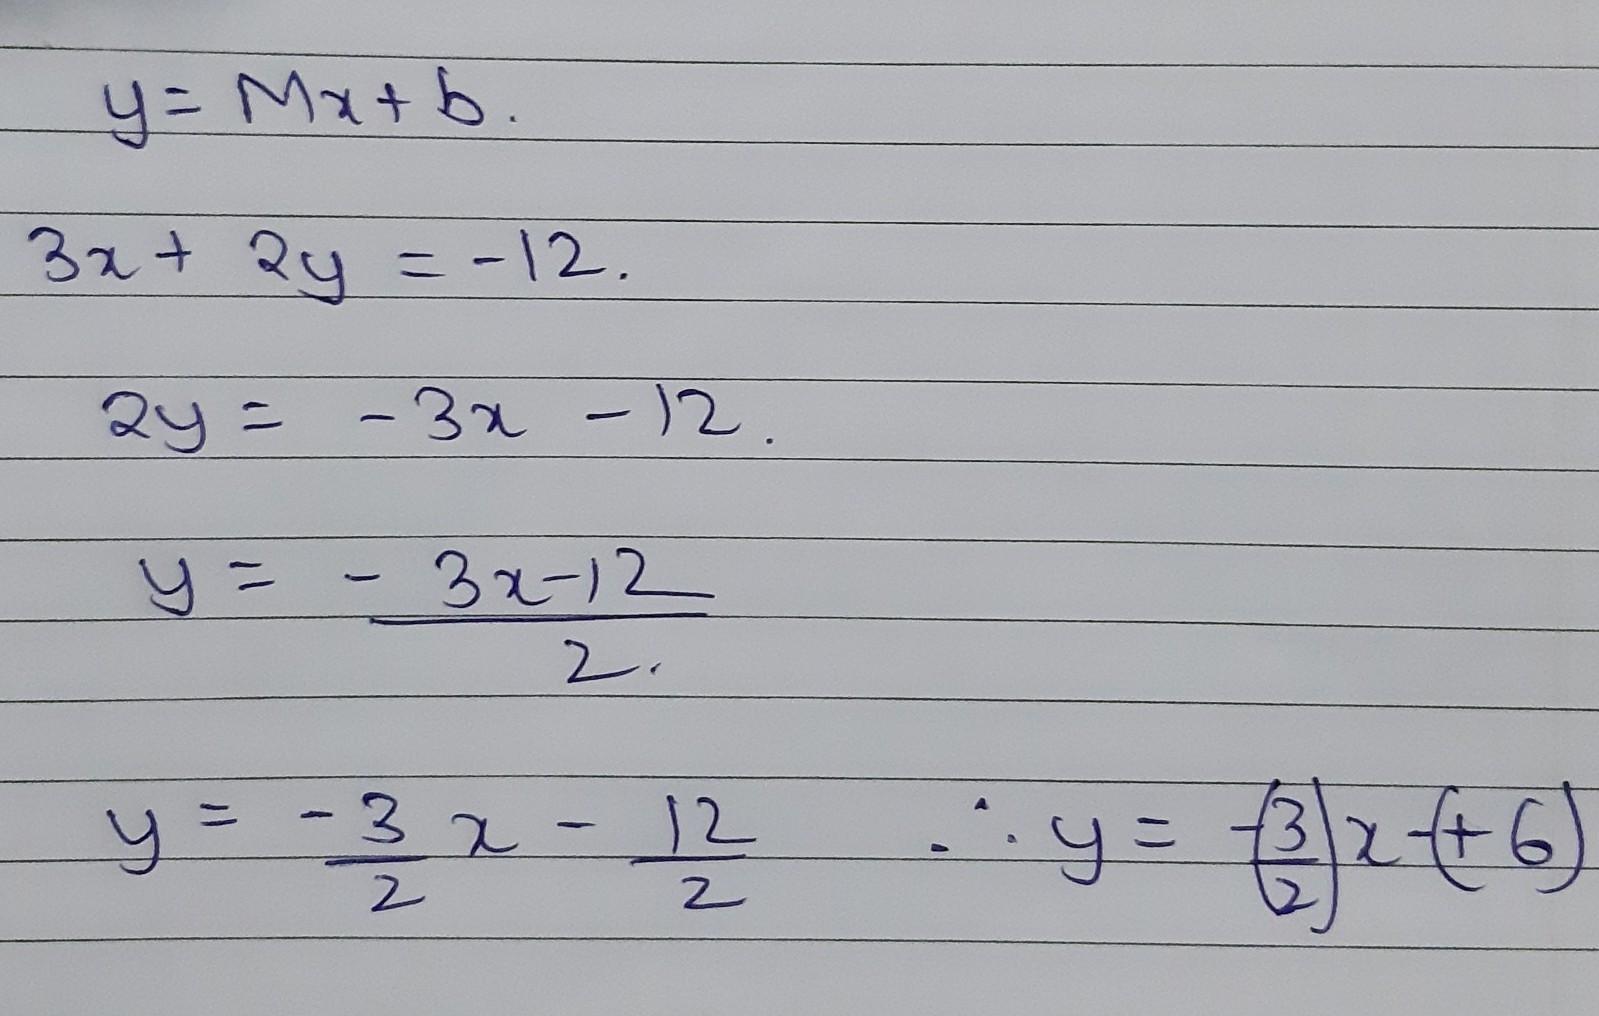 y = Mx + b.
3x + 2y = -12.
2y = -3x - 12.
y = - 3x-12 / 2.
y = -3/2 x - 12/2 ∴ y = -(3/2)x -(+6)